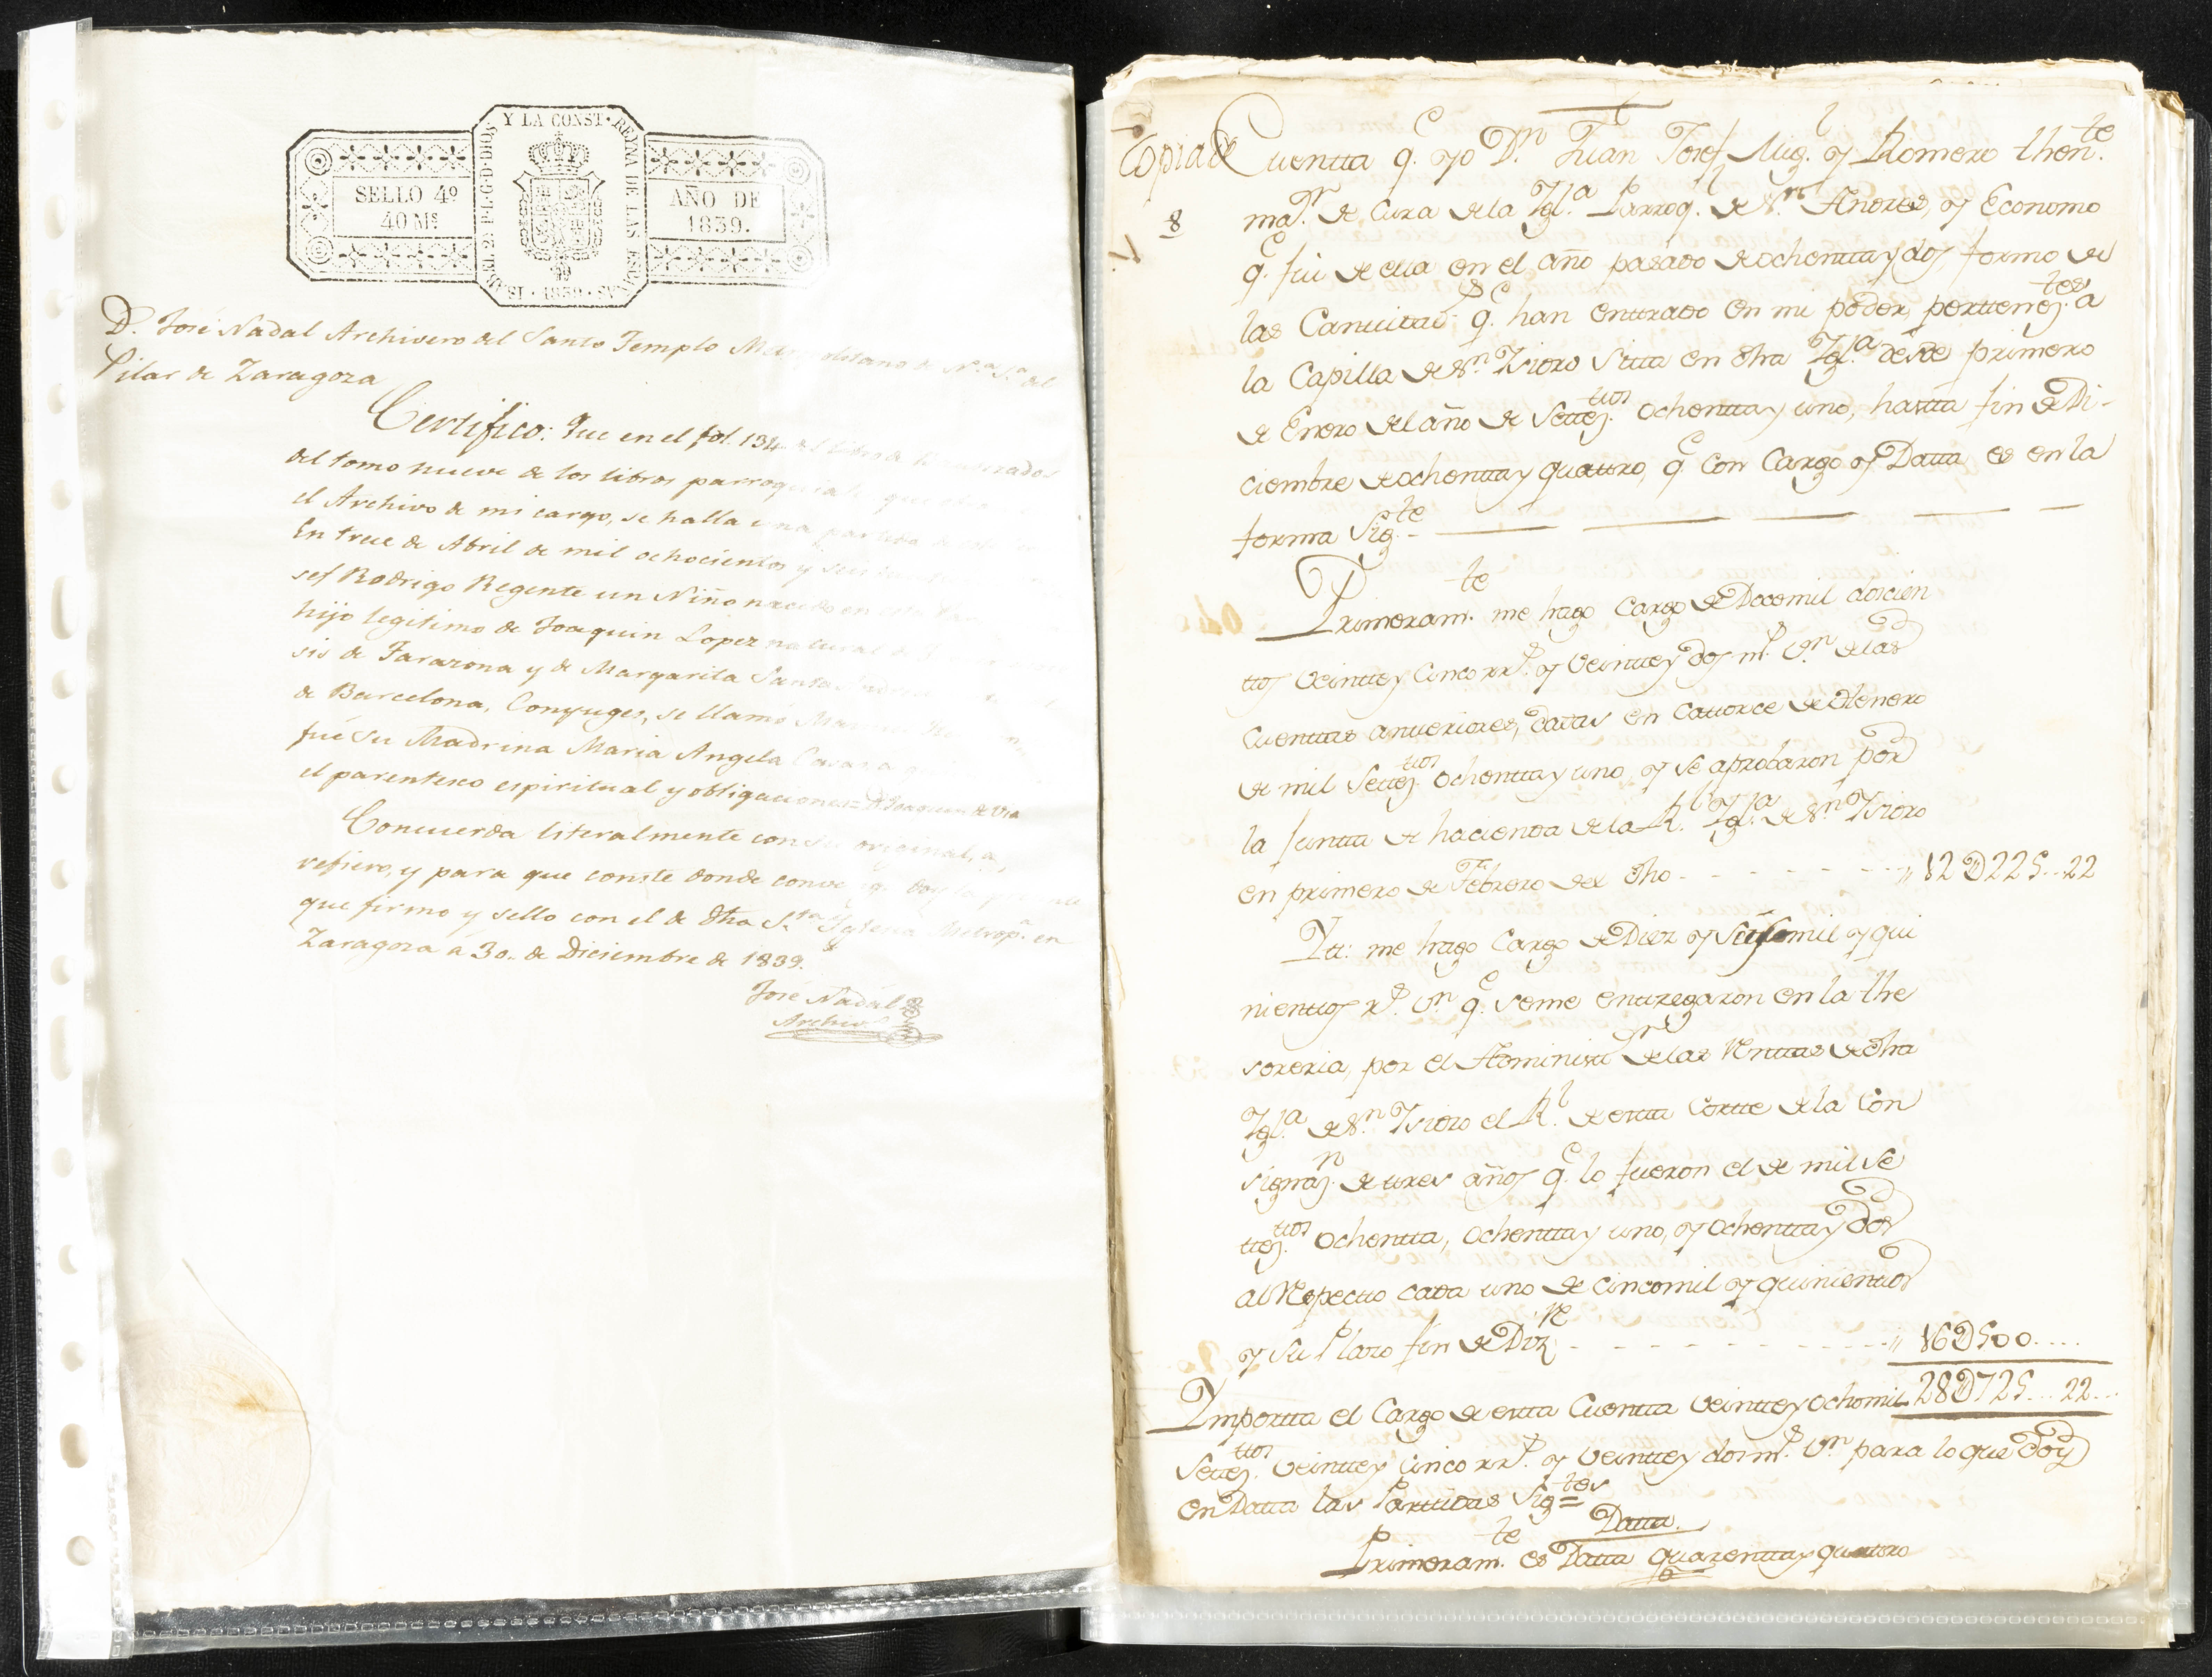 ISABEL 2ª P·L·G·D·DIOS Y LA CONST· REYNA DE LAS ESPAÑAS · 1839 ·
SELLO 4º
40 Ms
AÑO DE
1839.
D. José Nadal Archivero del Santo Templo Metropolitano de N.ª S.ª del
Pilar de Zaragoza
Certifico: Que en el fol. 134 del libro de
del tomo nueve de los libros parroquiales que
el Archivo de mi cargo, se halla una partida
En trece de Abril de mil ochocientos y
sef Rodrigo Regente un Niño nacido en
hijo legitimo de Joaquin Lopez natural de
sis de Tarazona y de Margarita Santa
de Barcelona, Conyuges, se llamó
fué su Madrina Maria Angela
el parentesco espiritual y obligaciones=
Concuerda literalmente con su original, a
refiero, y para que conste donde convenga doy la presente
que firmo y sello con el de dha S.ta Yglesia Metrop.ª en
Zaragoza á 30. de Diciembre de 1839.
José Nadal
Archiv.º
Copia de Cuentta q.e yo D.n Juan Josef Mig.l y Romero then.te
8 ma.r de Cura de la Ygl.ª Parroq.l de S.n Andres, y Economo
q.e fui de ella en el año pasado de ochentta y dos, formo de
las Canttidad.s q.e han enttrado en mi poder, perttenez.tes a
la Capilla de S.n Ysidro sitta en dha Ygl.ª desde primero
de Enero del año de Settez.ttos ochentta y uno, hastta fin de Di-
ciembre de ochentta y quattro, q.e con Cargo y Datta es en la
forma Sig.te
Primeram.te me hago Cargo de Doce mil doscien
ttos veintte y cinco rr.s y veintte y dos m.s v.n de las
Cuenttas antteriores, dadas en Cattorce de Henero
de mil Settez.ttos ochentta y uno, y se aprobaron por
la Juntta de hacienda de la R.l Ygl.ª de S.n Ysidro
en primero de Febrero del dho - - - - - - - - " 12D225...22
Ytt: me hago Cargo de Diez y Seis mil y qui
nienttos r.s v.n q.e se me enttregaron en la the
soreria, por el Administt.or de las Renttas de dha
Ygl.ª de S.n Ysidro el R.l de estta Cortte de la Con
signaz.n de ttres años q.e lo fueron el de mil Se
ttez.ttos ochentta, ochentta y uno, y ochentta y dos
al Respectto cada uno de cinco mil y quinienttos
y su Plazo fin de Diz.re - - - - - - - - " 16D500....
28D725...22...
Ymportta el Cargo de estta Cuentta veintte y ocho mil
Settez.ttos veintte y cinco rr.s y veintte y dos m.s v.n para lo que doy
en Datta las Parttidas Sig.tes =
Datta.
Primeram.te es Datta quarentta y quattro